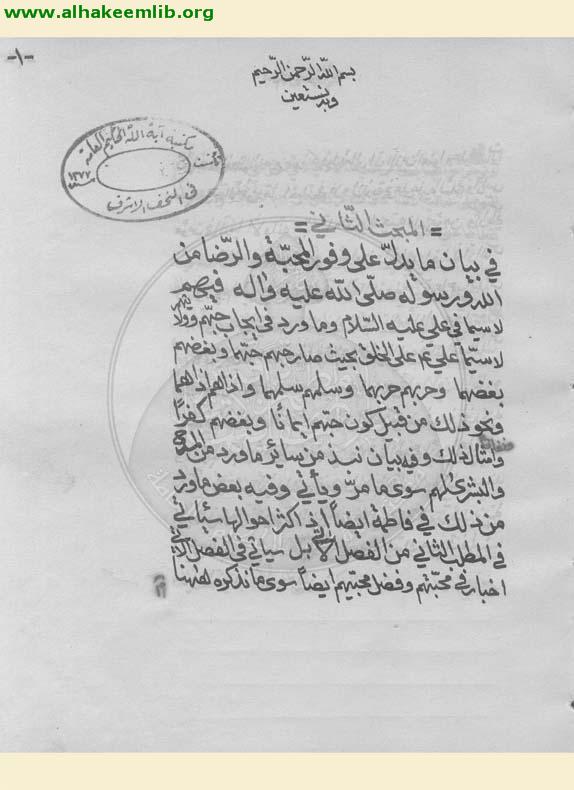 www.alhakeemlib.org
-١-
بسم الله الرحمن الرحيم
وبه نستعين
مكتبة آية الله الحكيم العامة
تأسست في
سنة ١٣٧٧
في النجف الاشرف
= المبحث الثاني =
في بيان ما يدل على وفور المحبة والرضا من
الله ورسوله صلى الله عليه وآله فيهم
لاسيما في علي عليه السلام وما ورد في ايجاب حبهم وولايتهم
لاسيما علي ع على الخلق بحيث صار حبهم حبهما وبغضهم
بغضهما وحربهم حربهما وسلمهم سلمهما واذاهم اذاهما
ونحو ذلك من قبيل كون حبهم ايمانا وبغضهم كفرا
وامثال ذلك وفيه بيان نبذ من سائر ما ورد من المدح
والبشرى لهم سوى ما مر ويأتي وفيه بعض ما ورد
من ذلك في فاطمة ايضا اذ اكثر احوالها سيأتي
في المطلب الثاني من الفصل الآتي بل سيأتي في الفصل الآتي
اخبار في محبتهم وفضل محبيهم ايضا سوى ما نذكره ههنا